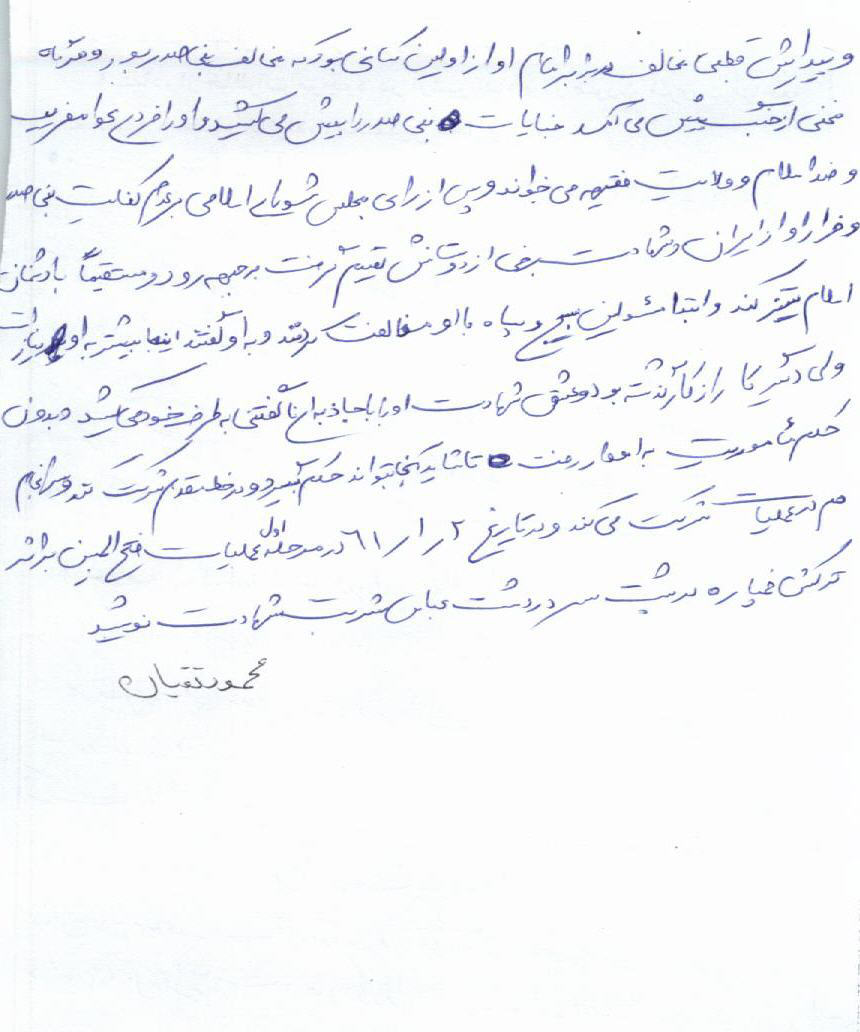 و بیدارش قطعی مخالف او از اولین کسانی بود که مخالف بنی صدر بود و وقتی که
سخنی از جنگ پیش می آمد خیانات بنی صدر را پیش می کشید و او را فردی عوامفریب
و ضد اسلام و ولایت فقیهه می خواند و پس از رای مجلس شورای اسلامی بر عدم کفایت بنی صدر
و فرار او از ایران و شهادت بعضی از دوستانش تصمیم گرفت به جبهه رود و مستقیماً با دشمنان
اسلام ستیز کند و ابتدا مسئولین بسیج و سپاه با او مخالفت کردند و به او گفتند اینجا بیشتر به او نیاز است
ولی دیگر کار از کار گذشته بود و عشق شهادت او را با جاذبه ای ناگفتنی به طرف خود می کشید و بدون
حکم مأموریت به اهواز رفت تا شاید آنجا بتواند حکم بگیرد و در خط مقدم شرکت کند و سرانجام
هم در عملیات شرکت می کند و در تاریخ ۲ر۱ر۶۱ در مرحله اول عملیات فتح المبین بر اثر
ترکش خمپاره در پشت سر در دشت عباس شربت شهادت نوشید
محمود تقیان